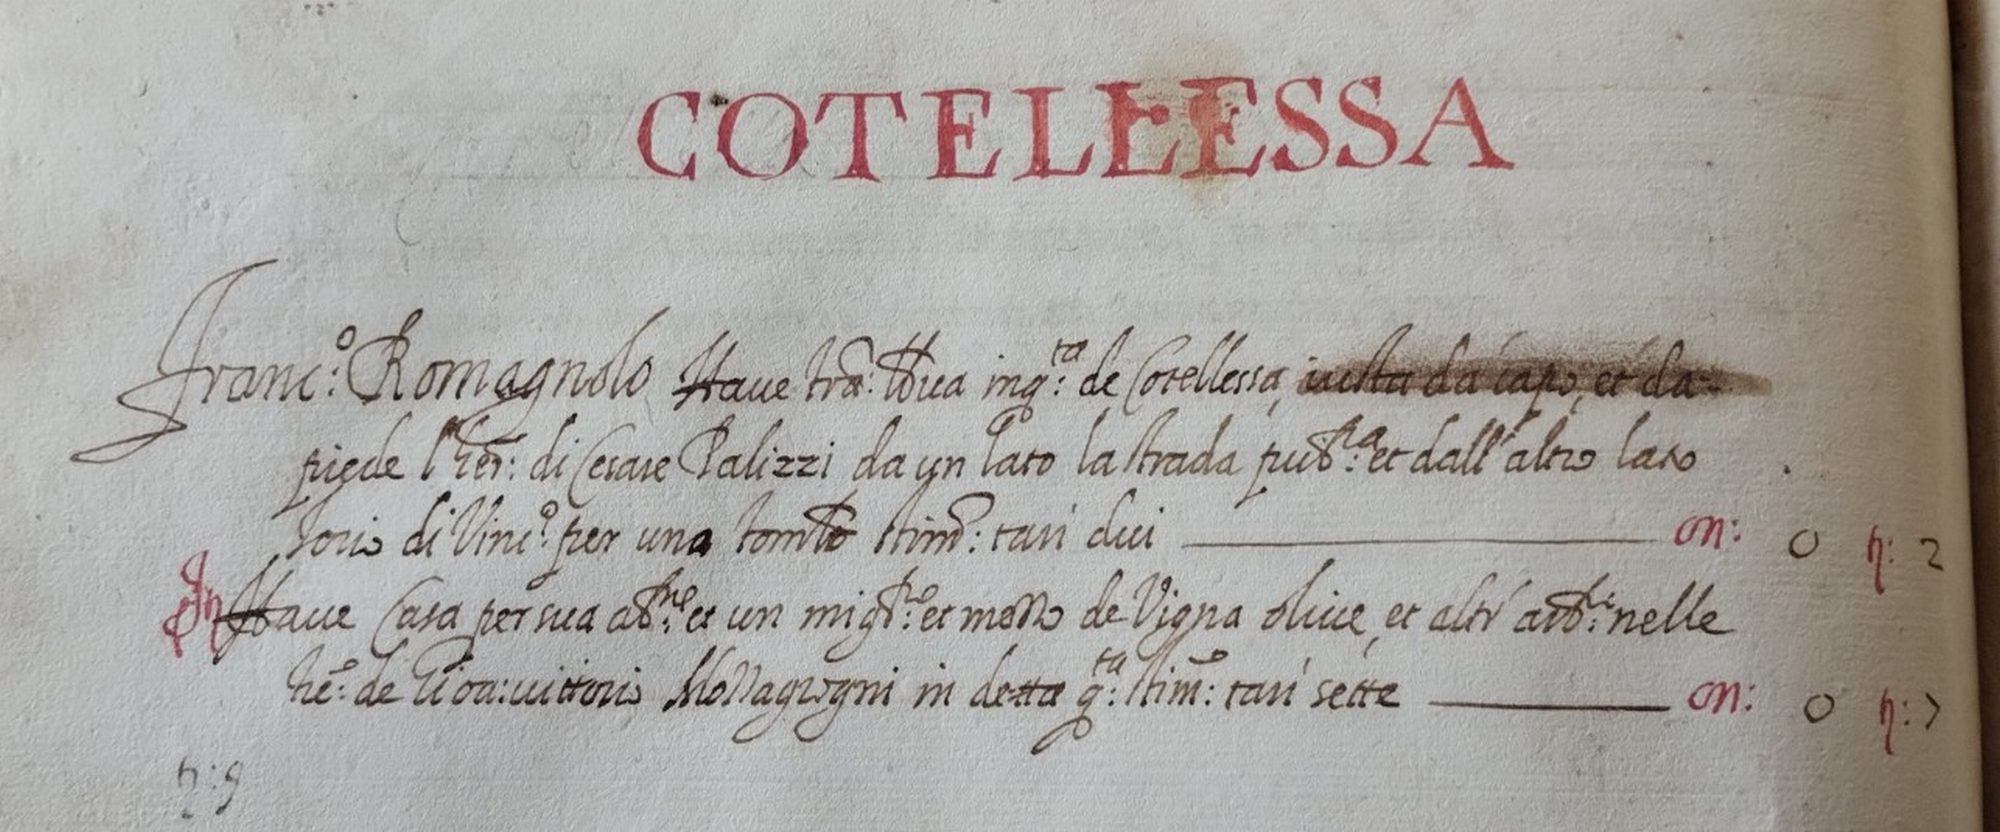 COTELLESSA
Franc:º Romagnolo Haue trã: in q:ta de Cotellessa, iusta da capo, et da-
piede l'her: di Cesare Palizzi da un lato la strada pub:ca et dall'altro lato
di Vinc:º per una stim: tarì dui on: 0 tt: 2
Haue Casa per sua ab:ne et un migl:º et mezzo de Vigna oliue, et altr' arb:i nelle
he: de Gioa:uittorio in detta q:ta stim:º tarì sette on: 0 tt: 7
tt: 9